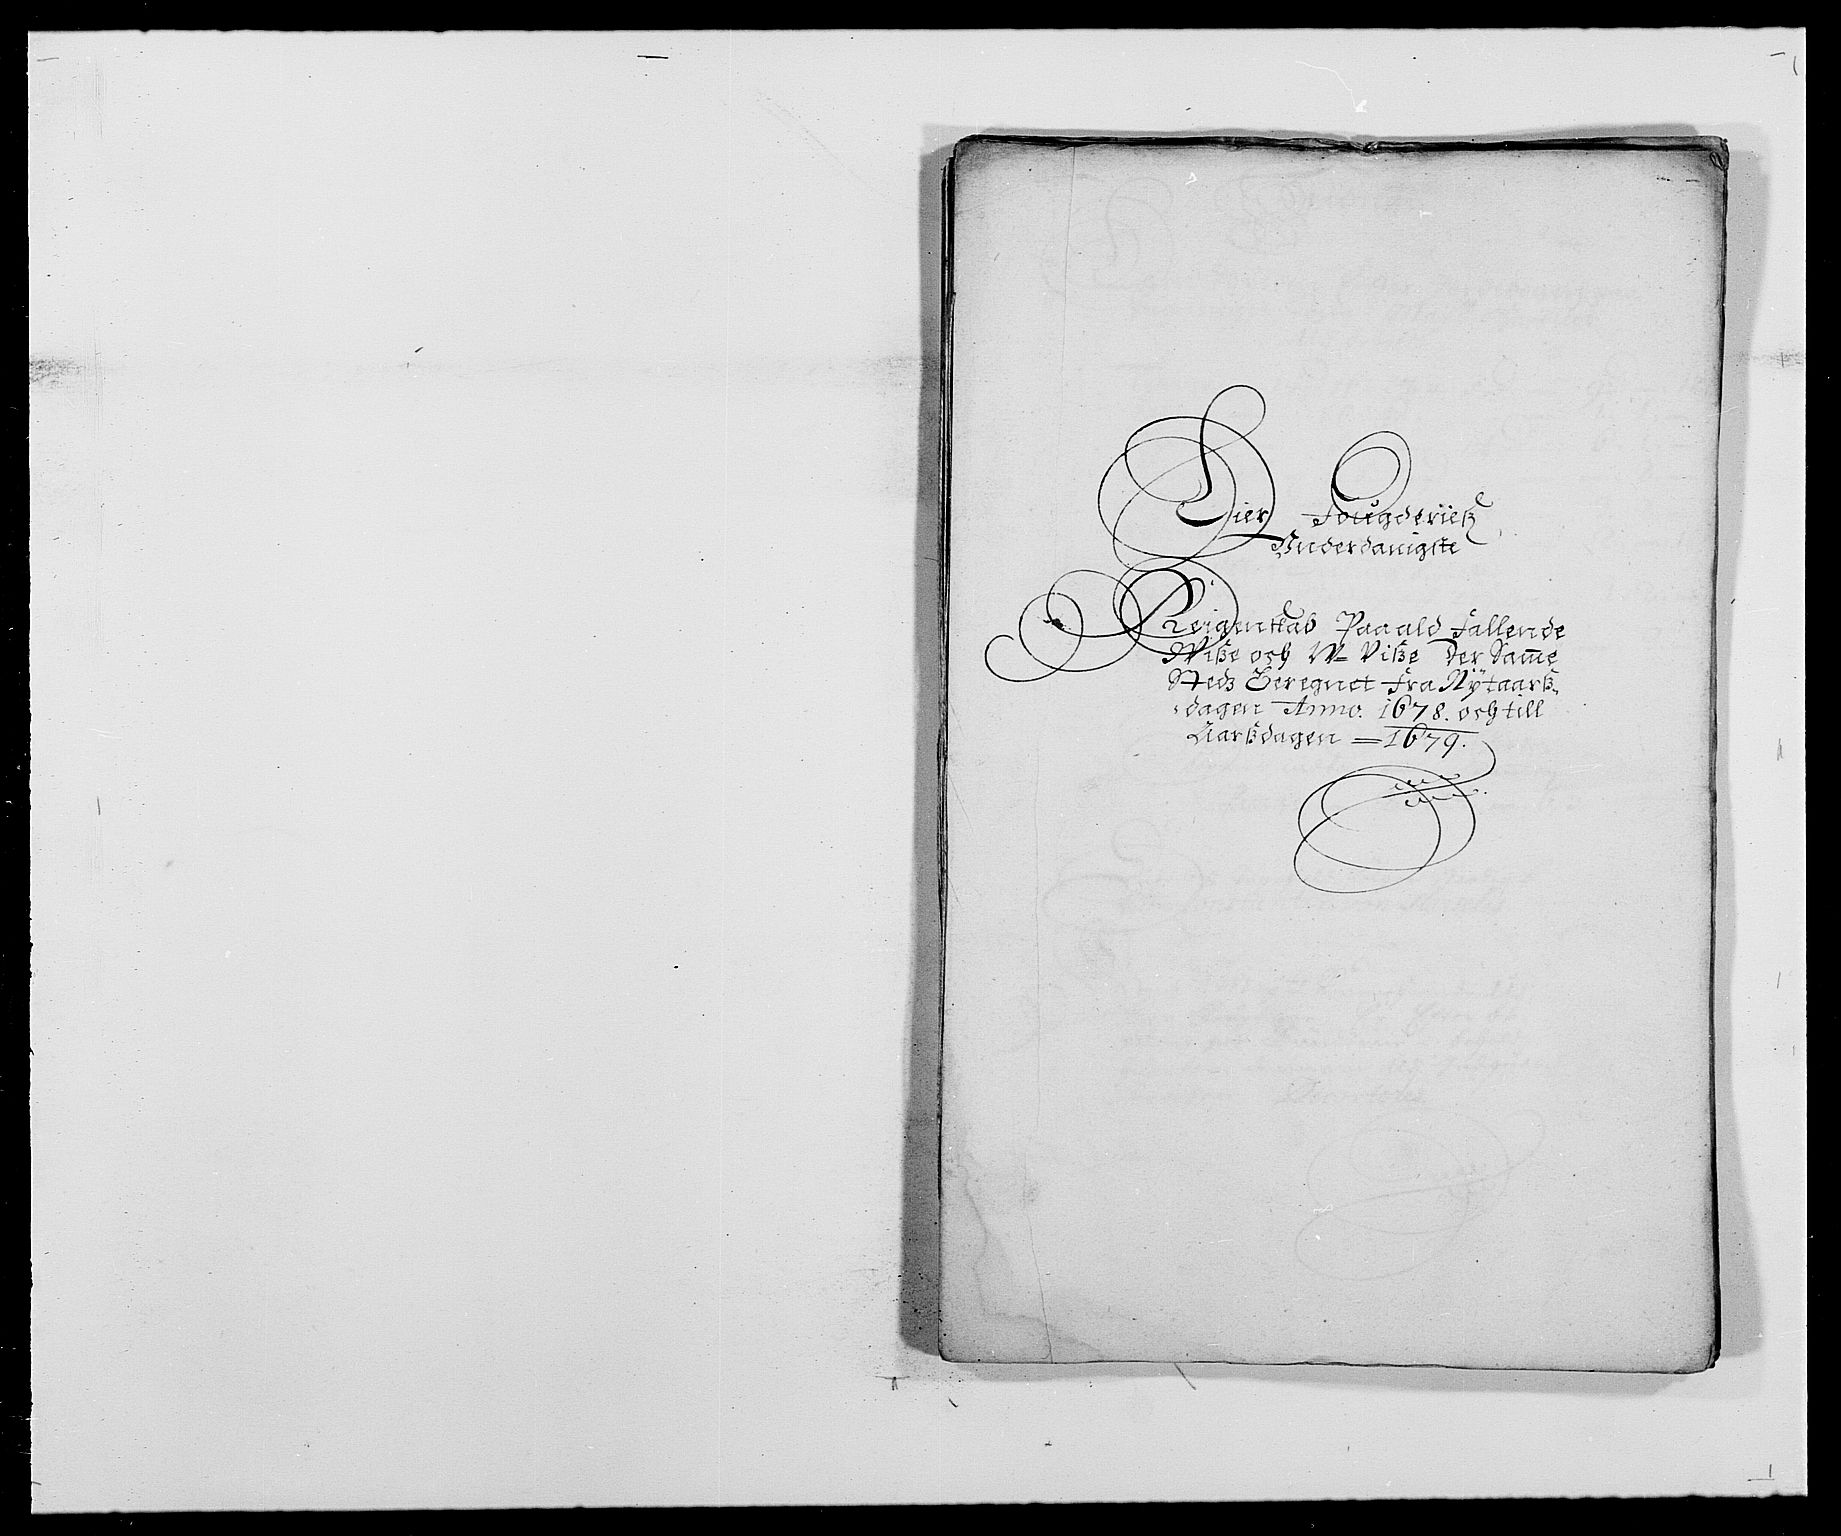 Lier Fougderieß
Underdanigste
Reigenskab Paa ald Fallende
Wiße och W= Viße Der Samme
Steds Beregnet Fra Nÿtaarß
dagen Anno. 1678. och till
Aarßdagen = 1679.